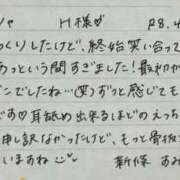 H様♡ R8.4
っくりしたけど、終始笑い合って
あっという間すぎました!最初が
どこでしたね…(笑)ずっと感じても
す♡耳舐め出来るほどのえっち
申し訳なかったけど、もっと骨抜
いますね
新條 あみ